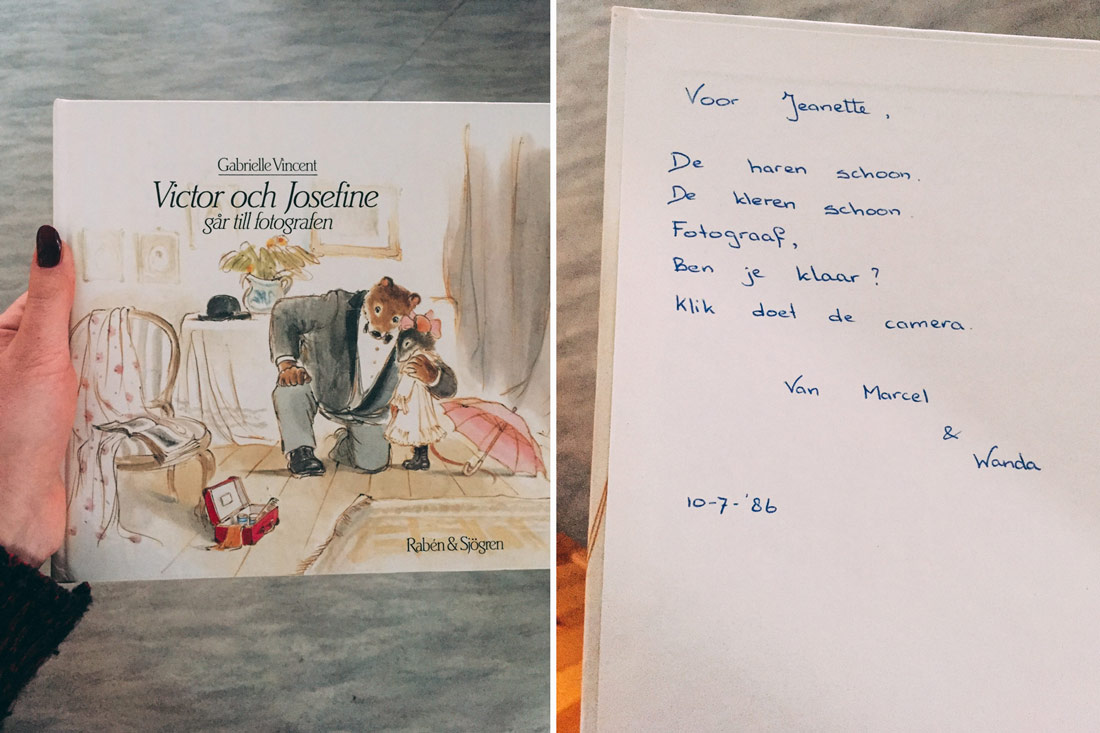 Gabrielle Vincent
Victor och Josefine
går till fotografen
Rabén & Sjögren
Voor Jeanette,
De haren schoon.
De kleren schoon.
Fotograaf,
Ben je klaar?
Klik doet de camera.
Van Marcel
&
Wanda
10-7-'86